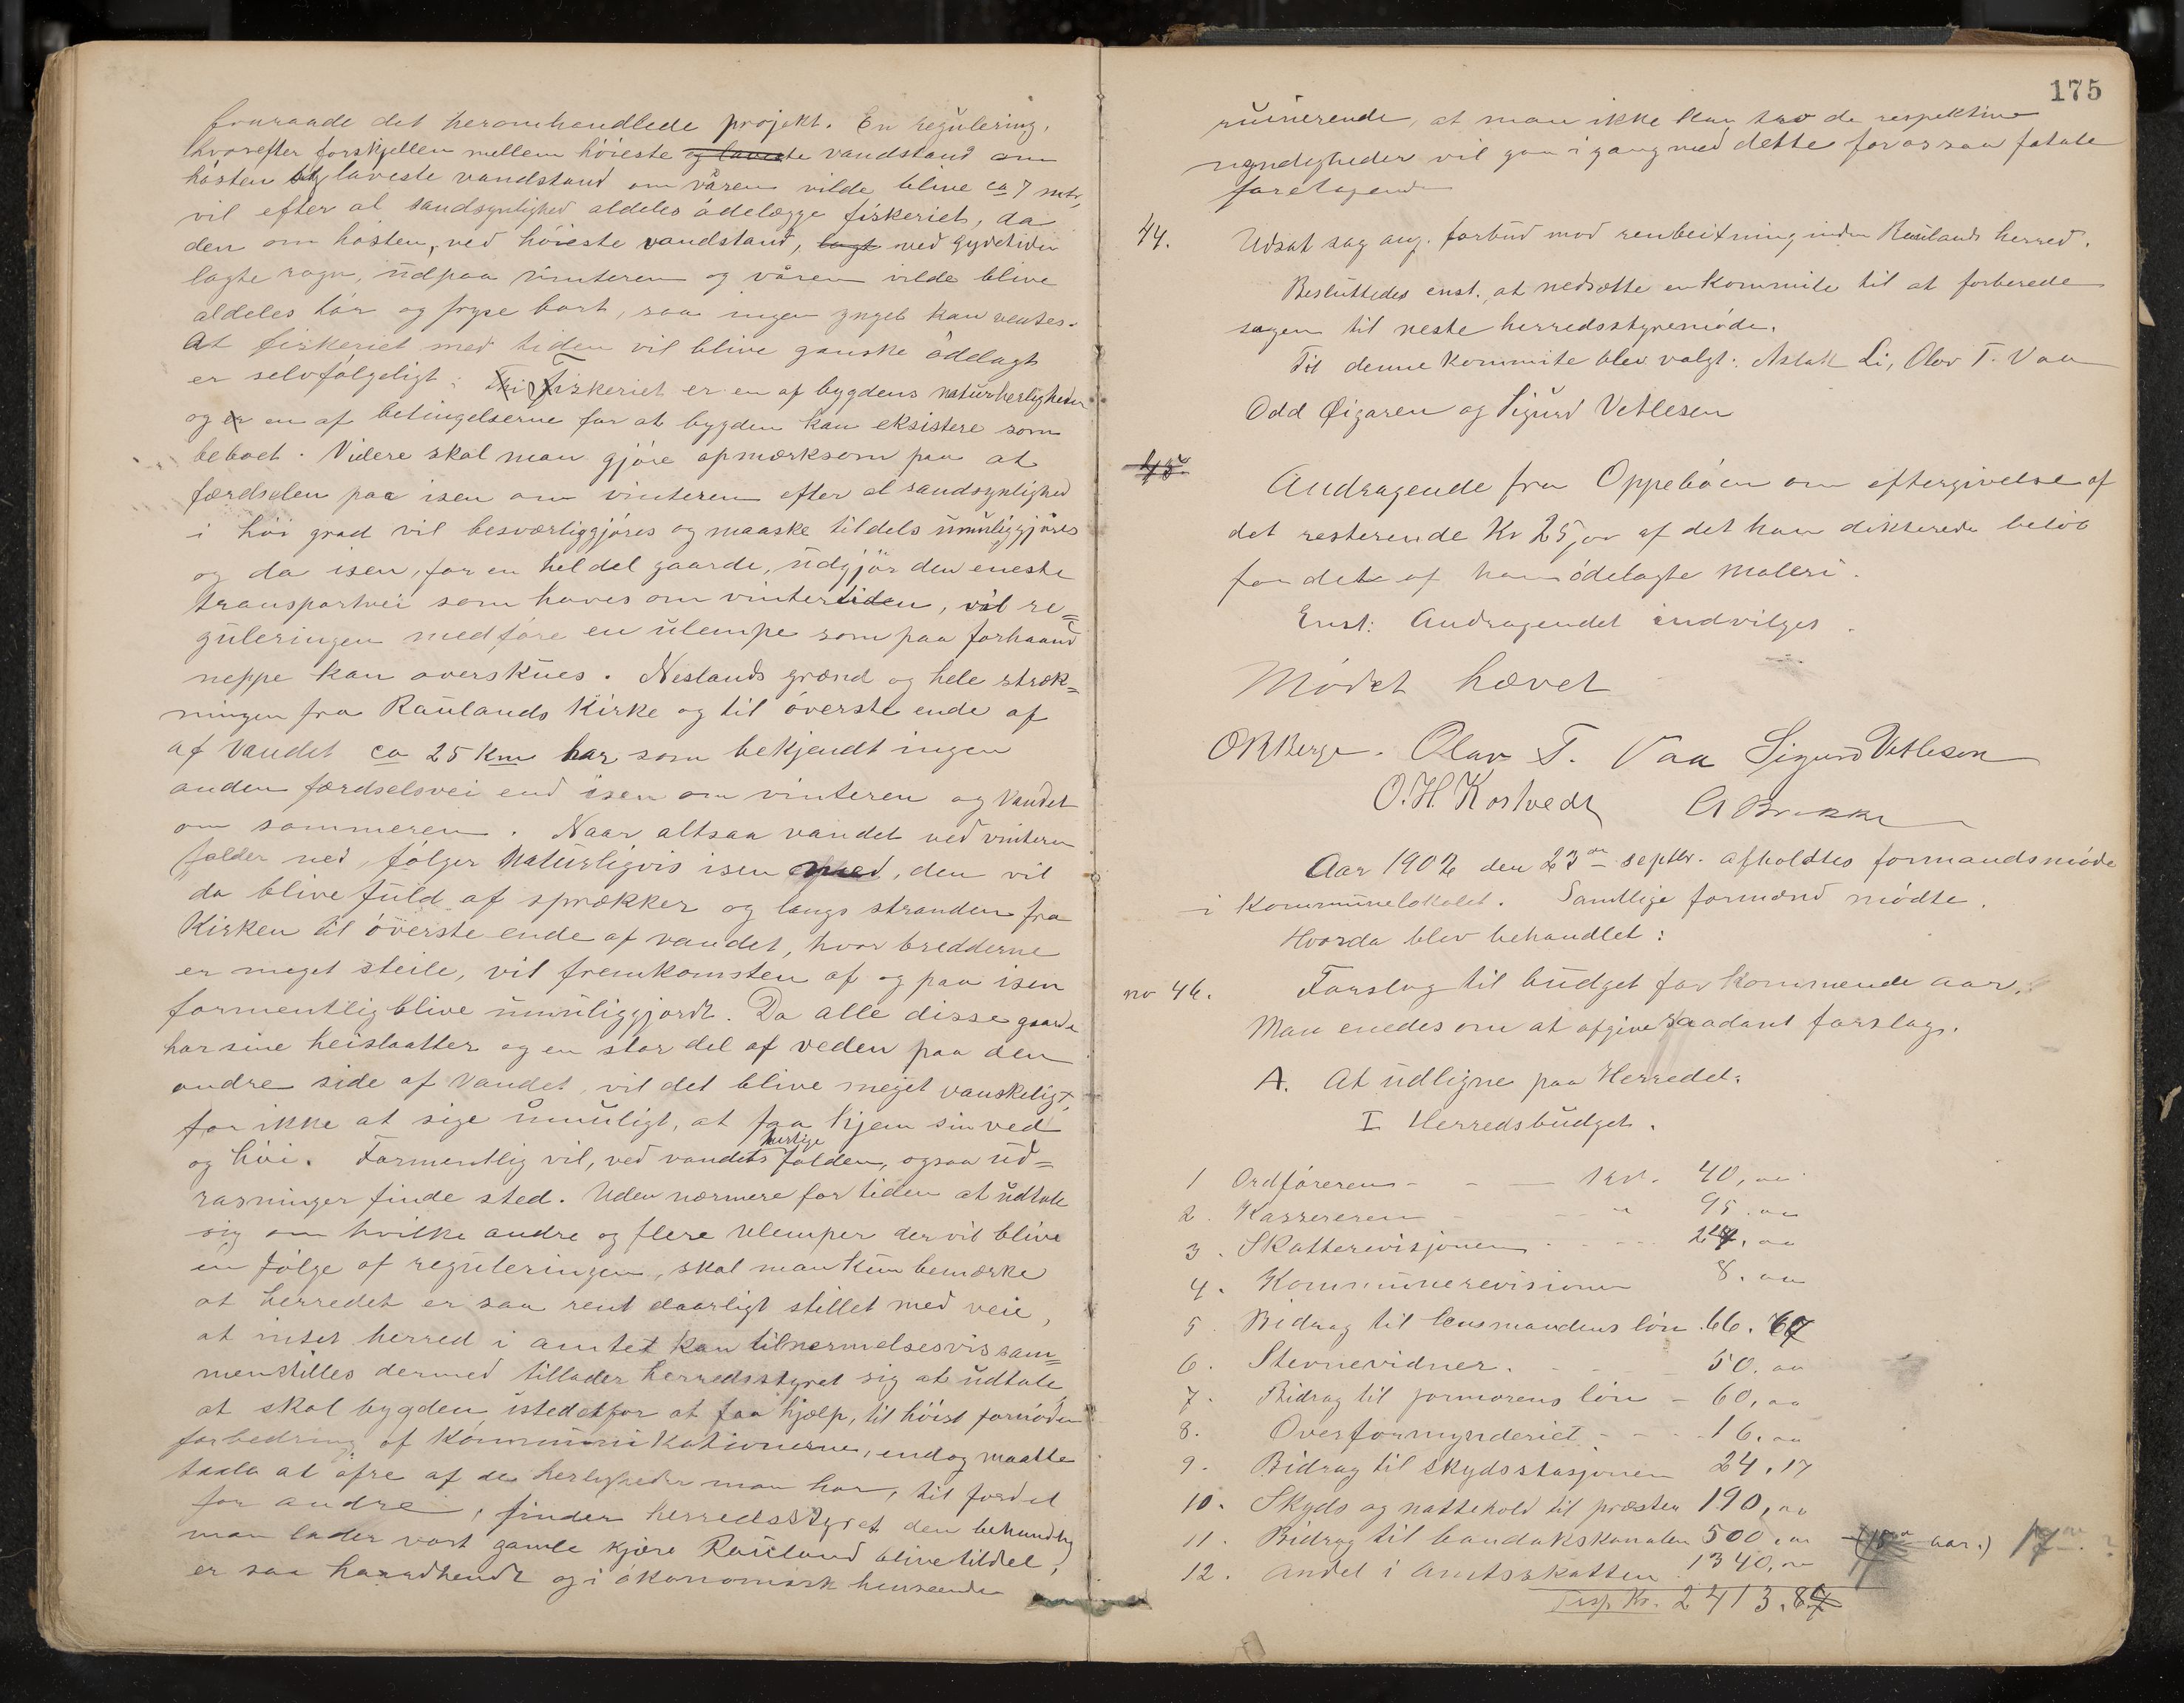 fraraade det heromhandlede projekt. En regulering,
hvorefter forskjellen mellem höieste og laveste vandstand om
hösten og laveste vandstand om våren vilde blive ca 7 mtr,
vil efter al sandsynlighed aldeles ödelægge fiskeriet, da
den om hösten, ved höieste vandstand, lagt ved gydetiden
lagte rogn, ud paa vinteren og våren vilde blive
aldeles tör og fryse bort, saa ingen yngel kan ventes.
At fiskeriet med tiden vil blive ganske ödelagt
er selvfölgeligt; Fiskeriet er en af bygdens naturherligheder
og er en af betingelserne for at bygden kan eksistere som
beboet. Videre skal man gjöre opmærksom paa at
færdselen paa isen om vinteren efter al sandsynlighed
i höi grad vil besværliggjöres og maaske tildels umuliggjöres
og da isen, for en hel del gaarde, udgjör den eneste
transportvei som haves om vintertiden, vil re=
guleringen medföre en ulempe som paa forhaand
neppe kan overskues. Neslands grænd og hele stræk=
ningen fra Raulands Kirke og til överste ende af
af Vandet ca 25 Km har som bekjendt ingen
anden færdselsvei end isen om vinteren og Vandet
om sommeren. Naar altsaa vandet ved vinteren
falder ned, fölger Naturligvis isen med, den vil
da blive fuld af sprækker og langs stranden fra
Kirken til överste ende af vandet, hvor bredderne
er meget steile, vil fremkomsten af og paa isen
formentlig blive umuliggjordt. Da alle disse gaarde
har sine heislaatter og en stor del af veden paa den
andre side af Vandet, vil det blive meget vanskeligt,
for ikke at sige umuligt, at faa hjem sin ved
og höi. Formentlig vil, ved vandets hurtige falden, ogsaa ud=
rasninger finde sted. Uden nærmere for tiden at udtale
sig om hvilke andre og flere Ulemper der vil blive
en fölge af reguleringen, skal man kun bemærke
at herredet er saa rent daarligt stillet med veie,
at intet herred i amtet kan tilnermelsesvis sam=
menstilles dermed tillader herredsstyret sig at udtale,
at skal bygden istedetfor at faa hjælp, til höist fornöden
forbedring af Kommunikationerne, endog maatte
taale at ofre af de herligheder man har, til fordel
for andre, finder herredsstyret den behandling
man lader vort gamle kjære Rauland blive tildel,
er saa haardhendt og i økonomisk henseende
175
ruinerende, at man ikke kan tro de respektive
myndigheder vil gaa i gang med dette for os saa fatale
foretagende
44. Udsat sag ang. forbud mod renbeitning inden Raulands herred.
Besluttedes enst. at nedsætte en Kommite til at forberede
sagen til neste herredsstyremöde.
Til denne kommite blev valgt: Aslak Li, Olav T. Vaa
Odd Øigaren og Sigurd Vetlesen
45 Andragende fra Oppeböen om eftergivelse af
det resterende Kr 25,00 af det ham dikterede belöb
for dete af ham ödelagte Maleri.
Enst: Andragendet indvilges.
Mödet hævet
O R Berge. Olav T. Vaa Sigurd Vetlesen
O. H. Kostvedt
Aar 1902 den 23de septbr. afholdtes formandsmöde
i Kommunelokalet. Samtlige formænd mödte.
Hvorda blev behandlet:
no 46. Forslag til budget for kommende aar.
Man enedes om at afgive saadant forslag.
A. At udligne paa Herredet.
I Herredsbudget.
1 Ordföreren - - — kr. 40,00
2. Kassereren - - " 95.00
3. Skatterevisjonen - - 24.00
4. Kommunerevisionen 8.00
5. Bidrag til lensmandens lön. 66.67
6. Stevnevidner. - - 50.00
7. Bidrag til jormorens lön - 60,00
8. Overformynderiet - - 16.00
9. Bidrag til skydsstasjonen 24.17
10. Skyds og nattehold til præsten 190,00
11. Bidrag til bandakskanalen 500,00 aar.) 17
12. Andel i Amtsskatten 1340,00
Trsp. Kr. 2413.84